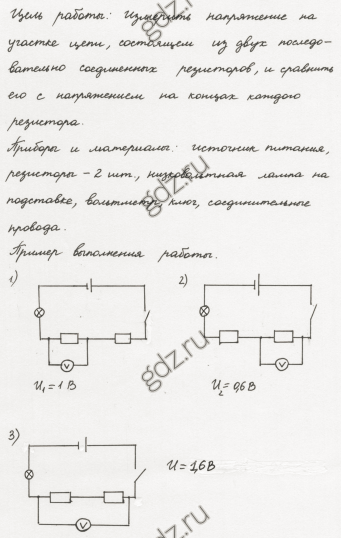 Цель работы: Измерить напряжение на
участке цепи, состоящем из двух последо-
вательно соединенных резисторов, и сравнить
его с напряжением на концах каждого
резистора.
Приборы и материалы: источник питания,
резисторы – 2 шт, низковольтная лампа на
подставке, вольтметр, ключ, соединительные
провода.
Пример выполнения работы.
1) 2)
V V
U₁ = 1 В U₂ = 0,6 В
3)
U = 1,6 В
V
gdz.ru
gdz.ru
gdz.ru
gdz.ru